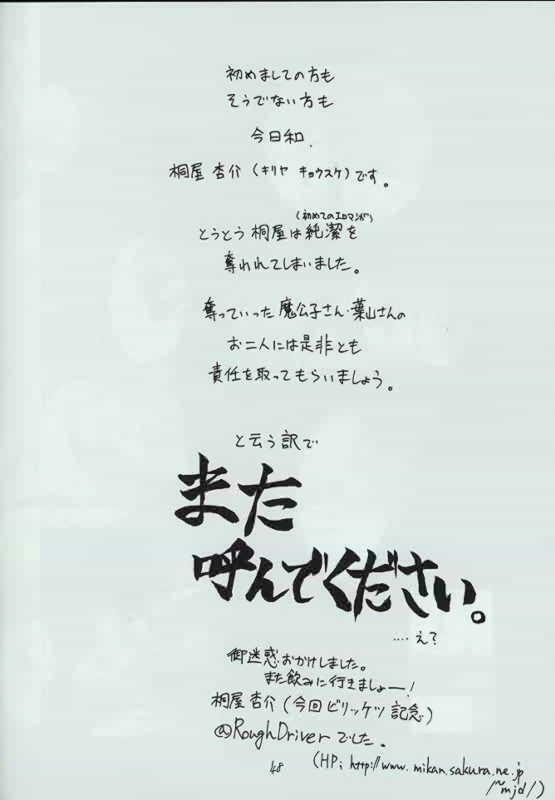 初めましての方も
そうでない方も
今日和.
桐屋 杏介(キリヤ キョウスケ)です。
(初めてのエロマンガ)
とうとう桐屋は純潔を
奪われてしまいました。
奪っていった魔公子さん・葉山さんの
お二人には是非とも
責任を取ってもらいましょう。
と云う訳で
また
呼んでください。
‥‥え?
御迷惑おかけしました。
また飲みに行きましょー!
桐屋 杏介(今回ビリッケツ記念)
@RoughDriverでした。
48
(HP; http://www.mikan.sakura.ne.jp
/~mjd/)